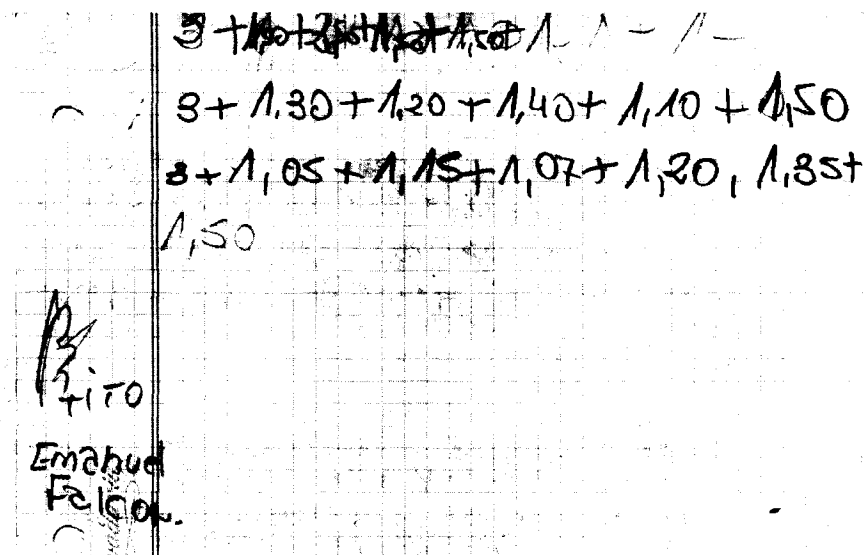 3+1,30+1,20+1,40+1,10+1,50
3+1,05+1,15+1,07+1,20, 1,35+
1,50
TiTO
Emanuel
Falcon.